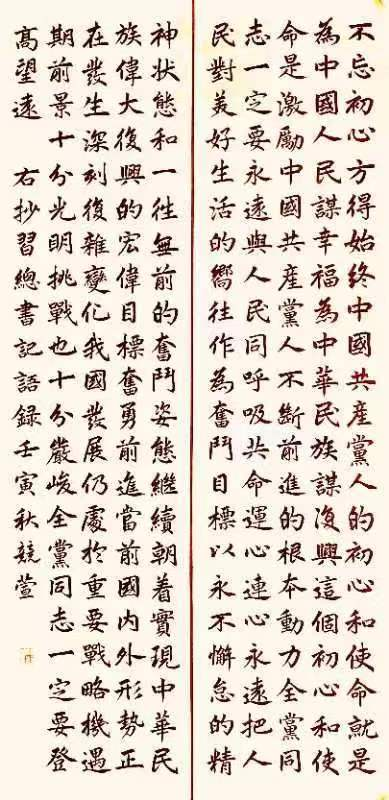 不忘初心方得始終中國共產黨人的初心和使命就是
為中國人民謀幸福為中華民族謀復興這個初心和使
命是激勵中國共產黨人不斷前進的根本動力全黨同
志一定要永遠與人民同呼吸共命運心連心永遠把人
民對美好生活的嚮往作為奮鬥目標以永不懈怠的精
神狀態和一往無前的奮鬥姿態繼續朝着實現中華民
族偉大復興的宏偉目標奮勇前進當前國內外形勢正
在發生深刻復雜變化我國發展仍處於重要戰略機遇
期前景十分光明挑戰也十分嚴峻全黨同志一定要登
高望遠 右抄習總書記語録壬寅秋競萱